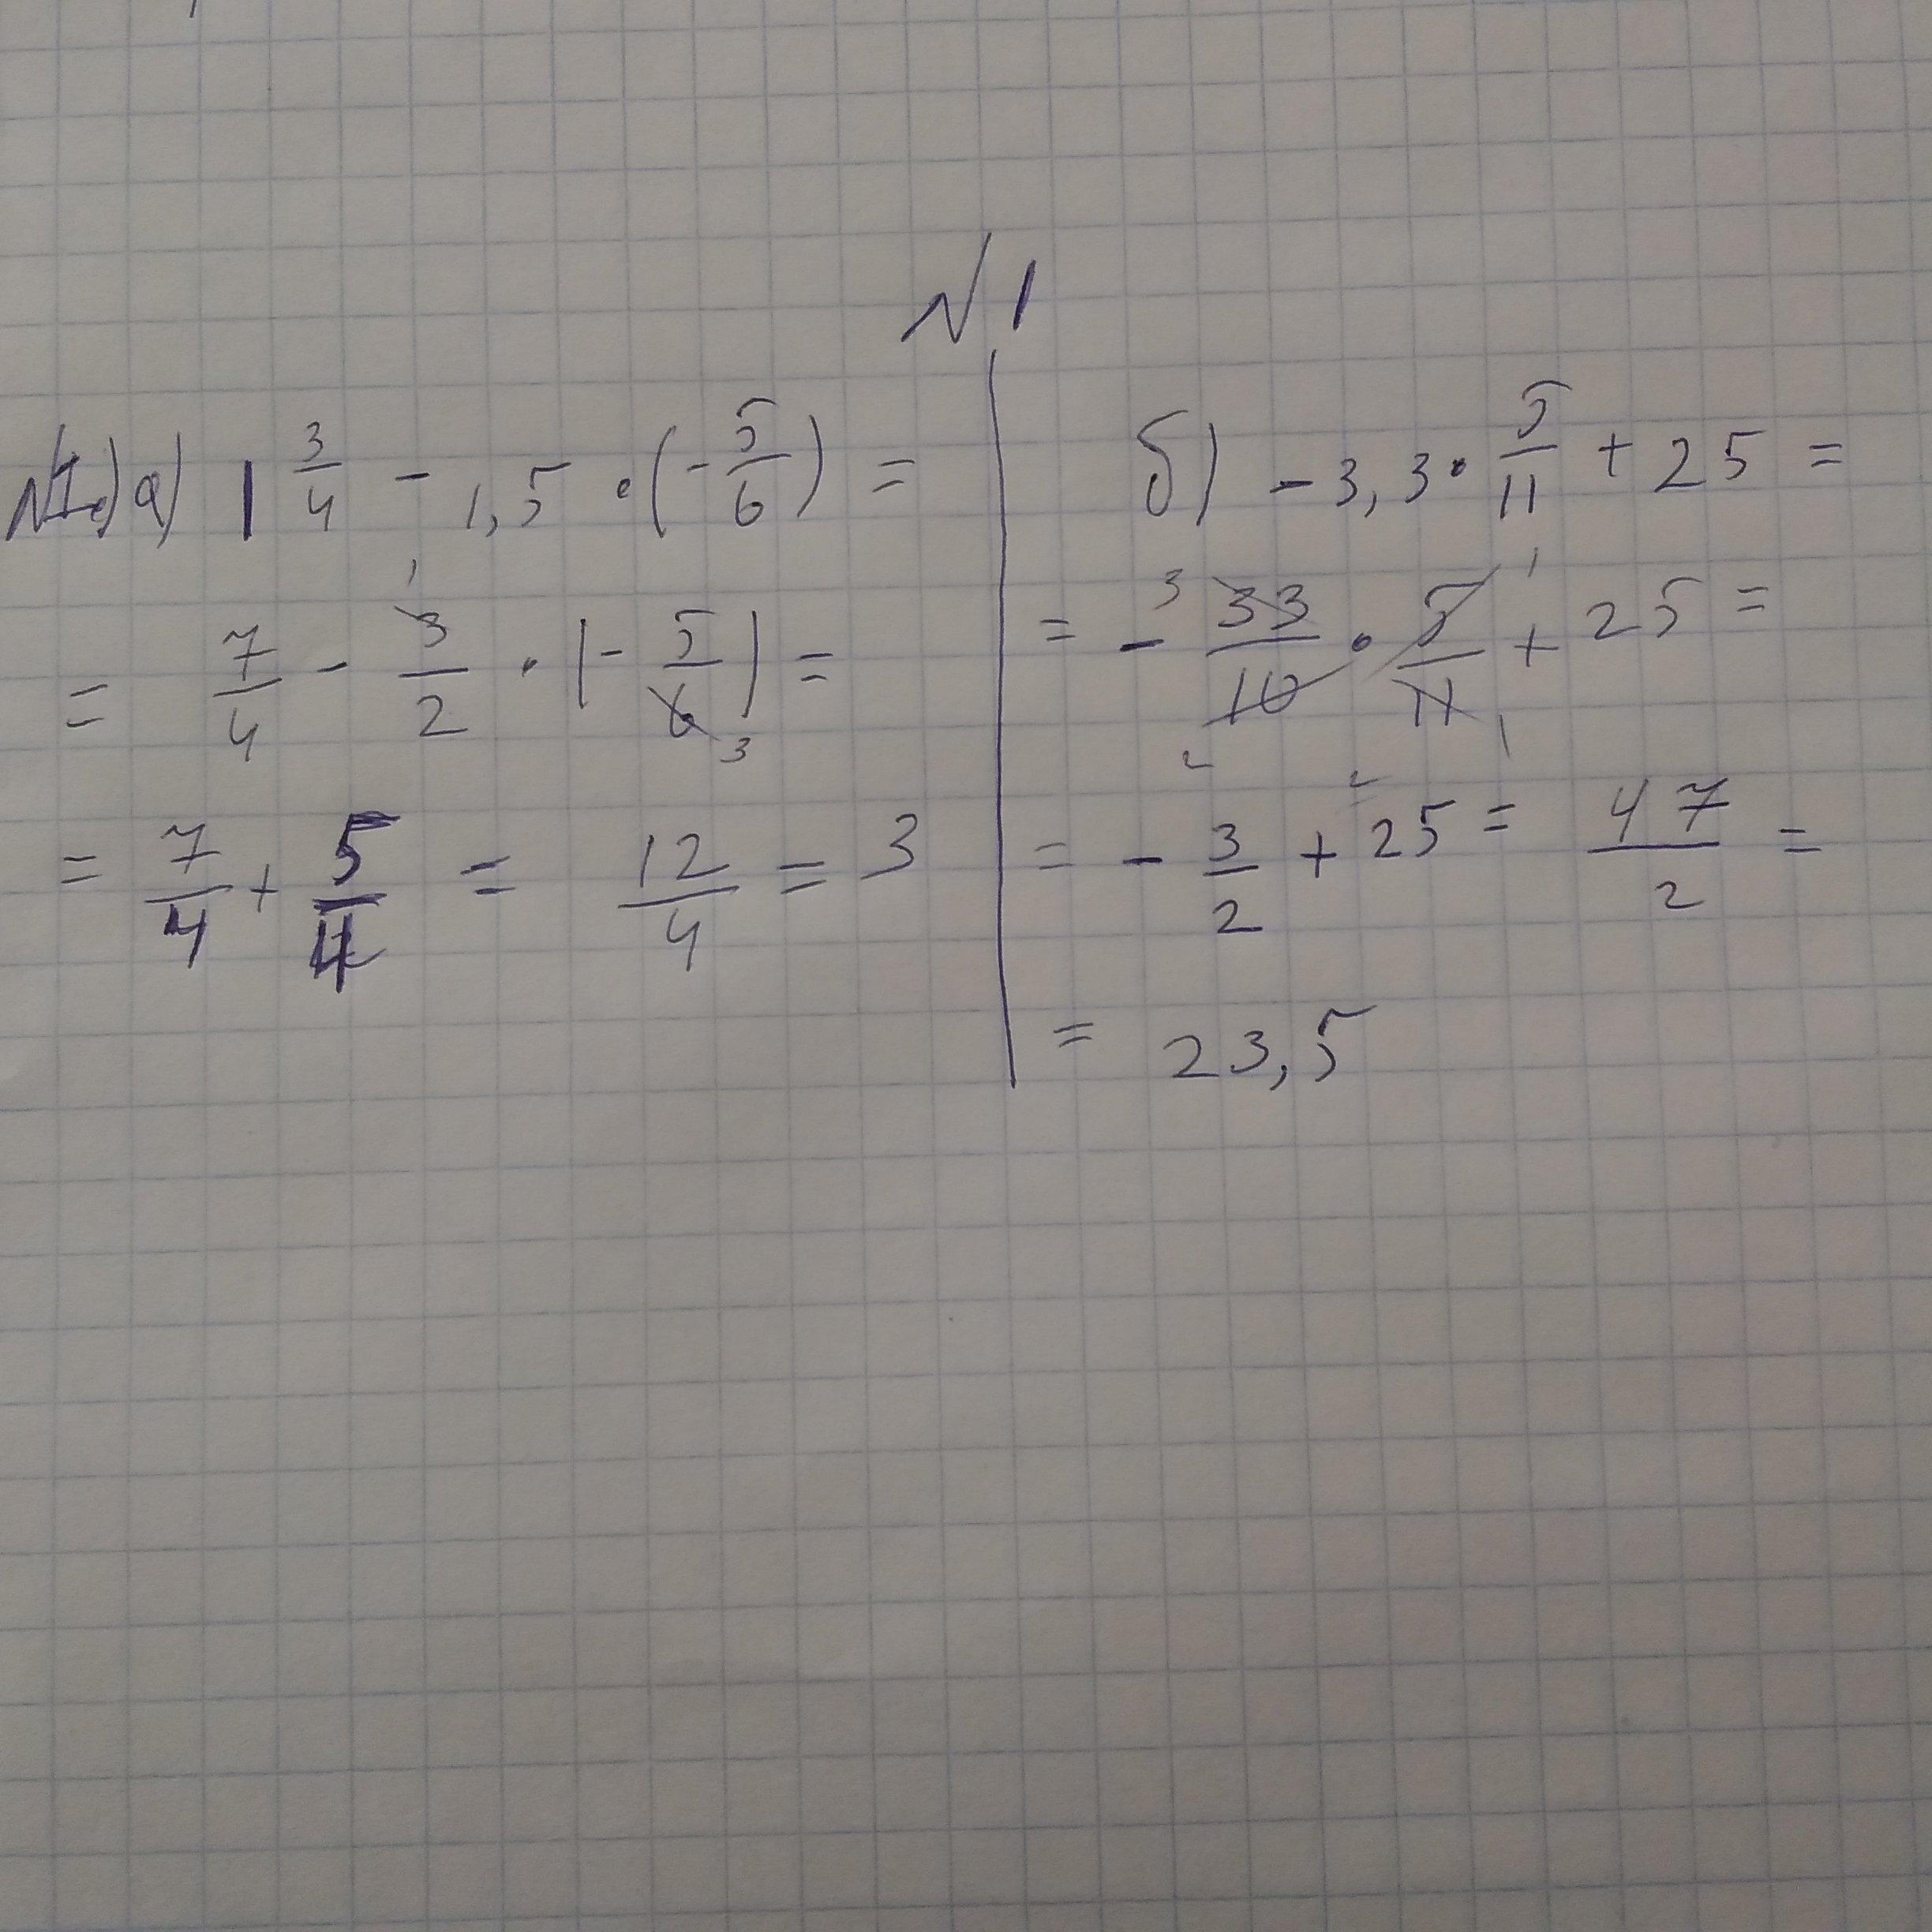 N 1
N1.) а) 1 3/4 - 1,5 · (- 5/6) =
= 7/4 - 3/2 · (- 5/6) =
1 3
= 7/4 + 5/4 = 12/4 = 3
б) - 3,3 · 5/11 + 25 =
= - 33/10 · 5/11 + 25 =
3 1 2 1
= - 3/2 + 25 = 47/2 =
2
= 23,5